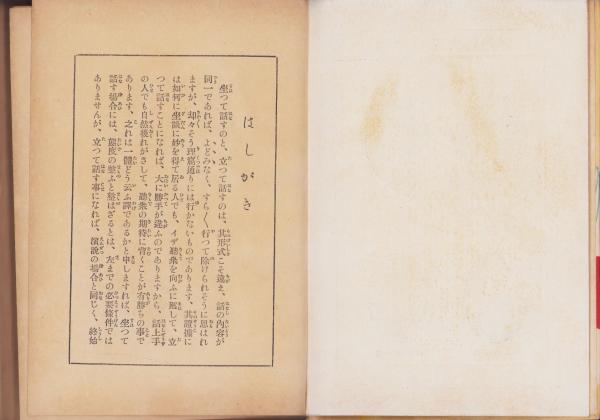 はしがき
坐つて話すのと、立つて話すのは、其形式こそ違ま、話の内容が
同一であれば、よどみなく、すら〱行つて除けられそうに思はれ
ますが、却々そう理窟通りには行かないものであります、其證據に
は如何に坐談に妙を得て居る人でも、イザ聽衆を向ふに廻して、立
つて話すことになれば、大に勝手が違ふのでありますから、話上手
の人でも自然後れがさして、聽衆の期待に背くことが有勝ちの事で
あります、之れは一體どう云ふ譯であるかと申しますれば、坐つて
話す場合には、態度の整ふと整はざるとは、左までの必要條件では
ありませんが、立つて話す事になれば、演說の場合と同じく、終始